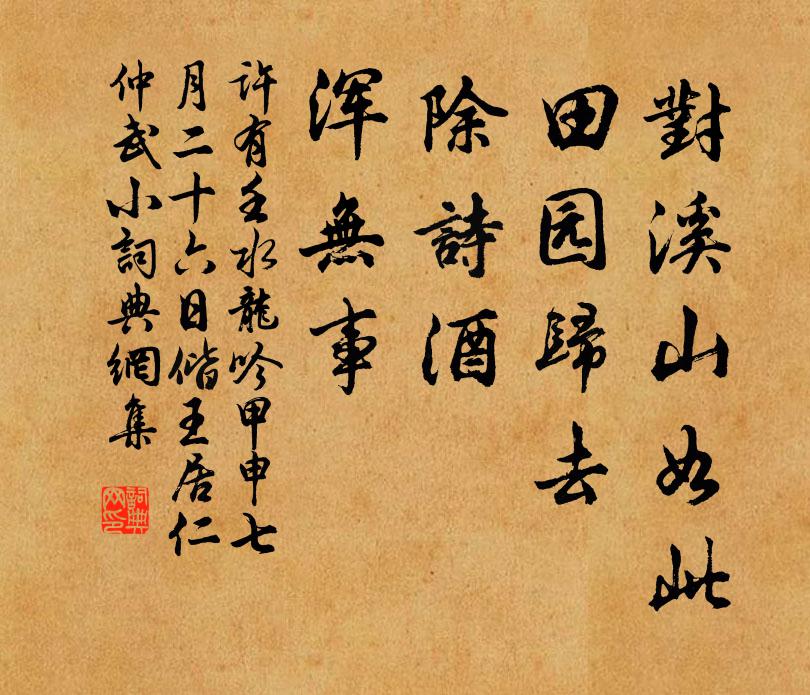 對溪山如此
田园歸去
除詩酒
渾無事
許有壬水龍吟甲申七
月二十六日偕王居仁
仲武小詞典網集
詞典
网印